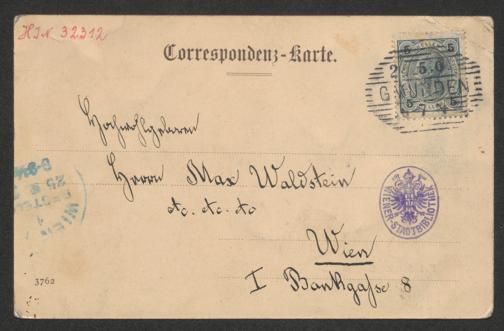 HIN 32312
Correspondenz-Karte.
5 5
GMUNDEN
5 5
Hochwohlgeboren
Herrn Max Waldstein
etc. etc. etc
Wien
I Bankgasse 8
WIENER-STADTBIBLIOTHEK
WIEN
25
3762